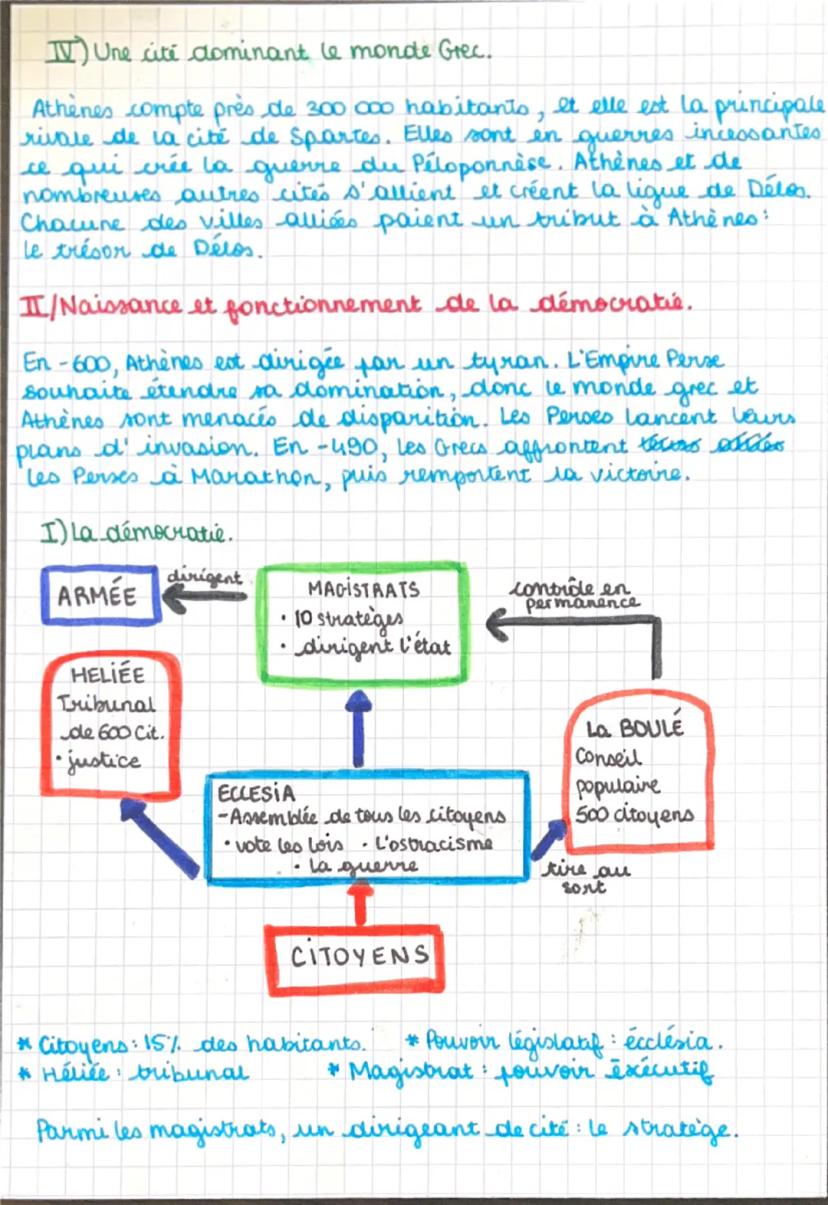 IV) Une cité dominant le monde Grec.
Athènes compte près de 300 000 habitants, et elle est la principale
rivale de la cité de Spartes. Elles sont en guerres incessantes
ce qui crée la guerre du Péloponnèse. Athènes et de
nombreuses autres cités s'allient et créent la ligue de Délos.
Chacune des villes alliées paient un tribut à Athènes :
le trésor de Délos.
II/Naissance et fonctionnement de la démocratie.
En -600, Athènes est dirigée par un tyran. L'Empire Perse
souhaite étendre sa domination, donc le monde grec et
Athènes sont menacés de disparition. Les Perses lancent leurs
plans d'invasion. En -490, les Grecs affrontent
les Perses à Marathon, puis remportent la victoire.
I) La démocratie.
ARMÉE
dirigent
MAGISTRATS
• 10 stratèges
• dirigent l'état
contrôle en
permanence
HELIÉE
Tribunal
de 600 Cit.
• justice
La BOULÉ
Conseil
populaire
500 citoyens
ECCLESIA
-Assemblée de tous les citoyens
• vote les lois • L'ostracisme
• La guerre
tire au
sort
CITOYENS
* Citoyens : 15% des habitants. * Pouvoir législatif : écclésia.
* Héliée : tribunal * Magistrat : pouvoir éxécutif
Parmi les magistrats, un dirigeant de cité : le stratège.